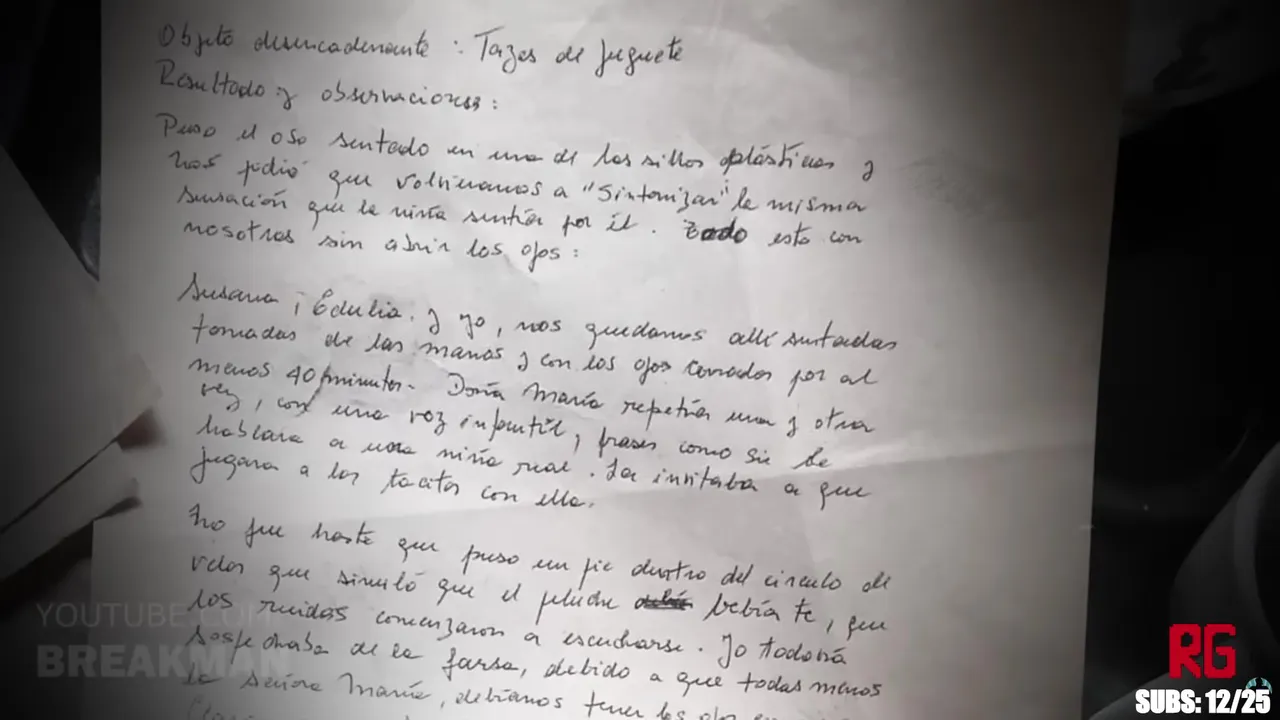 Objeto desencadenante : Tazas de juguete
Resultado y observaciones:
Puso el oso sentado en una de las sillas plásticas y
nos pidió que volvieramos a "Sintonizar" la misma
sensación que la niña sentía por él. Todo esto con
nosotras sin abrir los ojos :
Susana, Edulia. y yo, nos quedamos allí sentadas
tomadas de las manos y con los ojos cerrados por al
menos 40 minutos. Doña María repetía una y otra
vez, con una voz infantil, frases como si le
hablara a una niña real. La invitaba a que
jugara a las tacitas con ella.
No fue hasta que puso un pie dentro del circulo de
velas que simuló que el peluche bebía te, que
los ruidos comenzaron a escucharse. Yo todavía
sospechaba de la farsa, debido a que todas menos
la señora María, debíamos tener los ojos
YOUTUBE.COM
BREAKMAN
RG
SUBS: 12/25